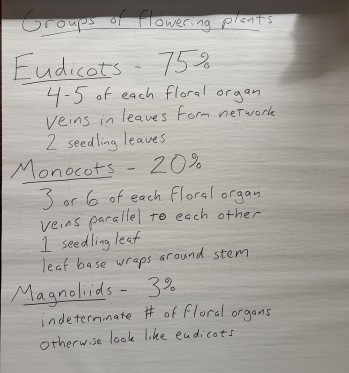 Groups of flowering plants
Eudicots - 75%
4-5 of each floral organ
veins in leaves form network
2 seedling leaves
Monocots - 20%
3 or 6 of each floral organ
veins parallel to each other
1 seedling leaf
leaf base wraps around stem
Magnoliids - 3%
indeterminate # of floral organs
otherwise look like eudicots